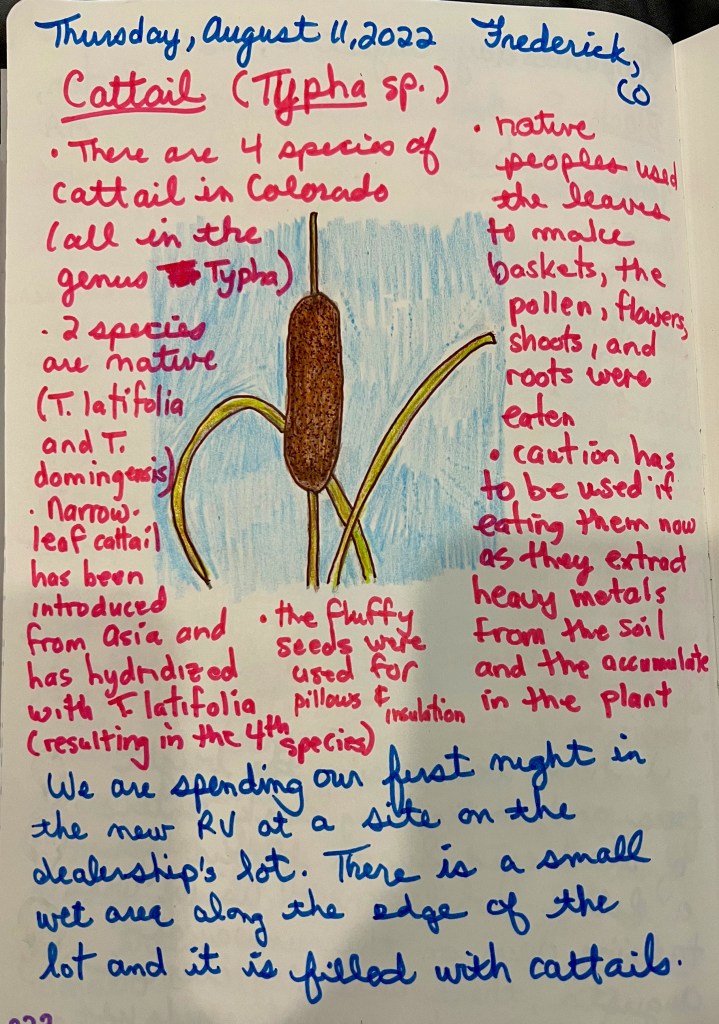 Thursday, August 11, 2022 Frederick, CO
Cattail (Typha sp.)
• There are 4 species of
cattail in Colorado
(all in the
genus Typha)
• 2 species
are native
(T. latifolia
and T.
domingensis)
• Narrow-
leaf cattail
has been
introduced
from Asia and
has hydridized
with T. latifolia
(resulting in the 4th species)
• the fluffy
seeds were
used for
pillows & insulation
• native
peoples used
the leaves
to make
baskets, the
pollen, flowers,
shoots, and
roots were
eaten
• caution has
to be used if
eating them now
as they extract
heavy metals
from the soil
and the accumulate
in the plant
We are spending our first night in
the new RV at a site on the
dealership's lot. There is a small
wet area along the edge of the
lot and it is filled with cattails.